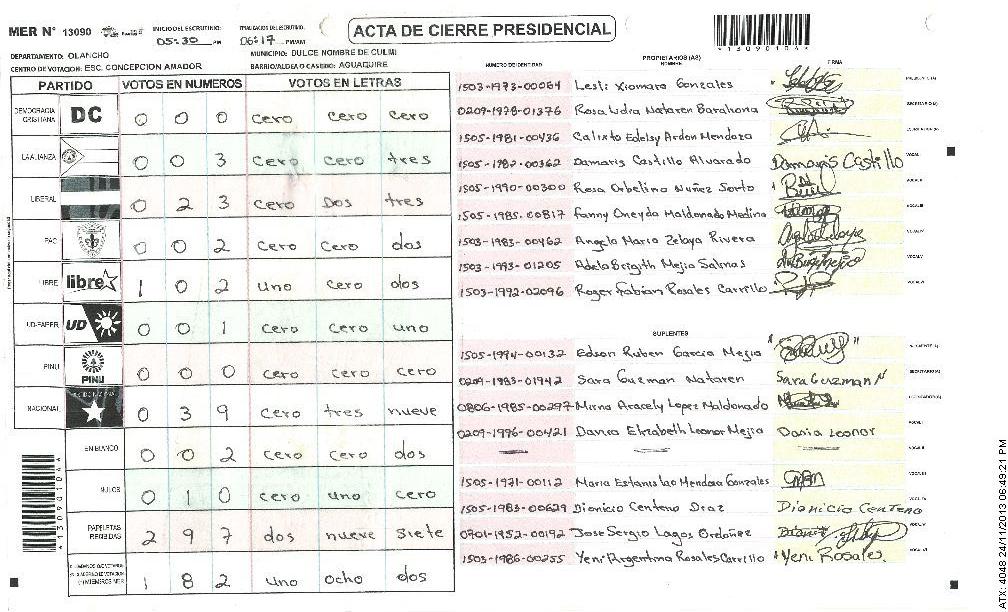 MER N° 13090
INICIO DEL ESCRUTINIO:
05:30 PM
FINALIZACION DEL ESCRUTINIO:
06:17 PM/AM
ACTA DE CIERRE PRESIDENCIAL
*13090104*
DEPARTAMENTO: OLANCHO
MUNICIPIO: DULCE NOMBRE DE CULMI
CENTRO DE VOTACION: ESC. CONCEPCION AMADOR
BARRIO/ALDEA O CASERIO: AGUAQUIRE
PARTIDO VOTOS EN NUMEROS VOTOS EN LETRAS
DEMOCRACIA CRISTIANA DC 0 0 0 cero cero cero
LA ALIANZA 0 0 3 cero cero tres
LIBERAL 0 2 3 cero Dos tres
PAC 0 0 2 cero cero dos
LIBRE libre 1 0 2 uno cero dos
UD-FAPER UD 0 0 1 cero cero uno
PINU PINU 0 0 0 cero cero cero
NACIONAL 0 3 9 cero tres nueve
EN BLANCO 0 0 2 cero cero dos
NULOS 0 1 0 cero uno cero
PAPELETAS RECIBIDAS 2 9 7 dos nueve siete
1 8 2 uno ocho dos
*13090104*
PROPIETARIOS (AS)
NUMERO DE IDENTIDAD NOMBRE FIRMA
1503-1973-00064 Lesli Xiomara Gonzales
0209-1978-01376 Rosa Lidia Nataren Barahona
1505-1981-00436 Calixto Edelsy Ardon Mendoza
1505-1982-00362 Damaris Castillo Alvarado Damaris Castillo
1505-1990-00300 Rosa Orbelina Nuñez Sorto
1505-1985-00817 Fanny Oneyda Maldonado Medina
1503-1983-00462 Angela Maria Zelaya Rivera
1503-1993-01205 Adela Brigith Mejia Salinas
1503-1992-02096 Roger Fabian Rosales Carrillo
SUPLENTES
1505-1994-00132 Edson Ruben Garcia Mejia
0209-1983-01942 Sara Guzman Nataren Sara Guzman N
0806-1985-00297 Mirna Aracely Lopez Maldonado
0209-1996-00421 Dania Elizabeth Leonor Mejia Dania Leonor
1505-1971-00112 Maria Estanislao Mendoza Gonzales
1505-1983-00629 Dionicio Centeno Diaz Dionicia Centeno
0701-1952-00192 Jose Sergio Lagos Ordoñez
1503-1986-00255 Yeni Argentina Rosales Carrillo Yeni Rosales
ATX: 4048 24/11/2013 06:49:21 PM